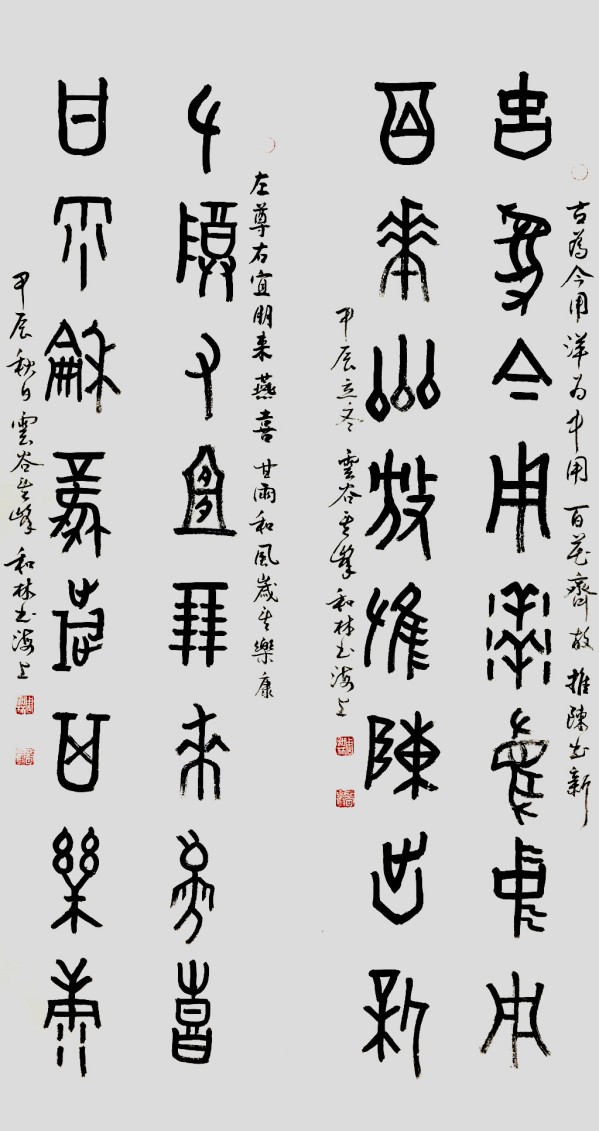 古為今用洋為中用 百花齊放推陳出新
古為今用洋為中用
百花齊放推陳出新
甲辰立冬 雲谷其峰 和林书海上
左尊右宜朋来燕喜 甘雨和風歲其樂康
左尊右宜朋來燕喜
甘雨和風歲其樂康
甲辰秋日雲谷其峰 和林书海上